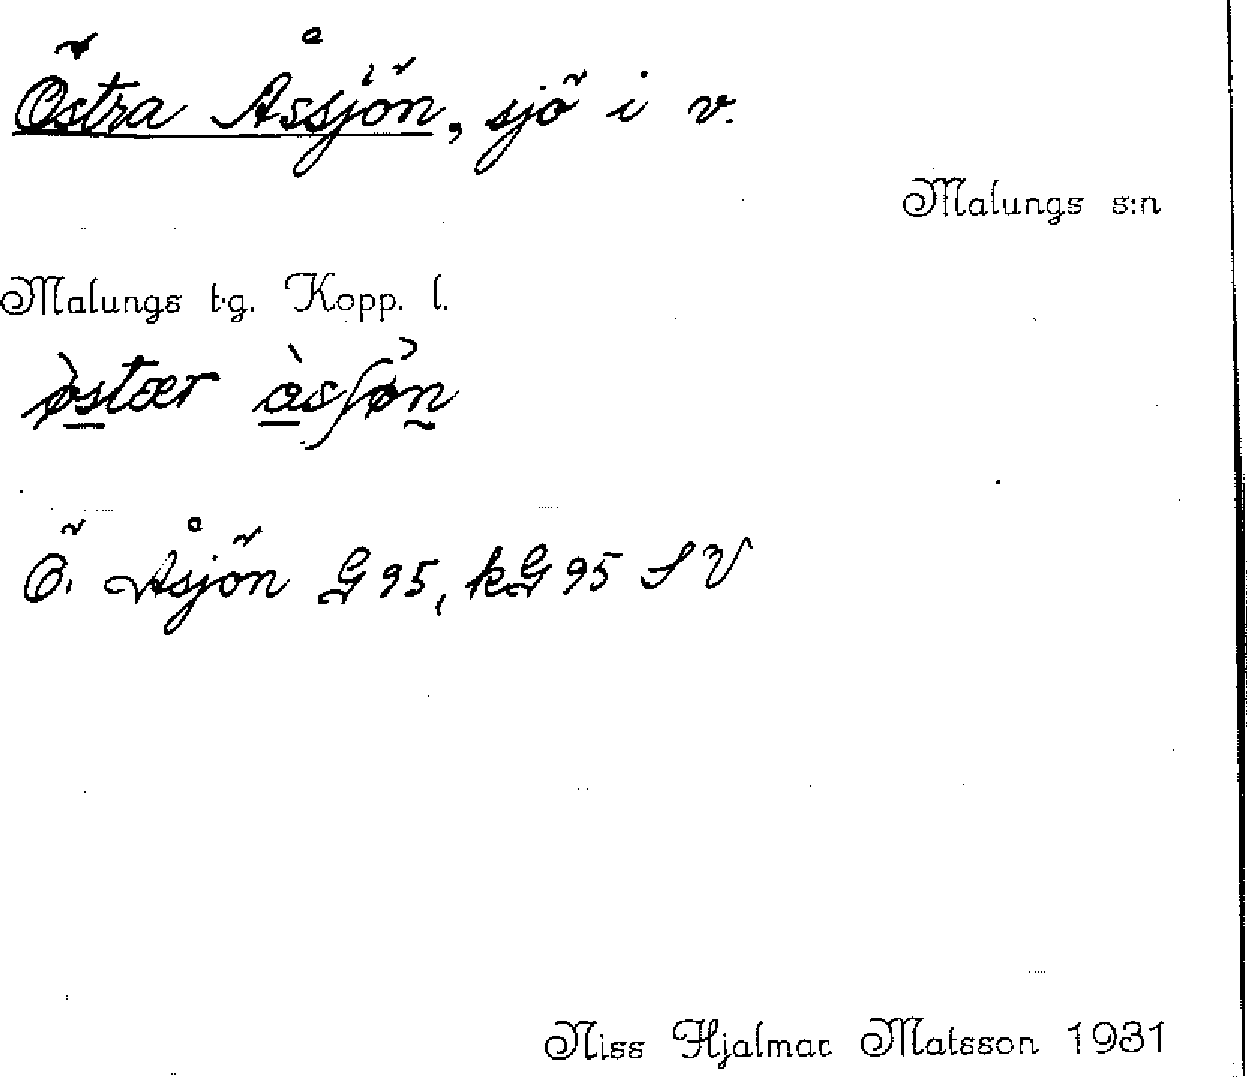 Östra Åssjön, sjö i v.
Malungs s:n
Malungs t.g. Kopp. l.
Ö. Åsjön G 95, kG 95 S V
Niss Hjalmar Matsson 1931